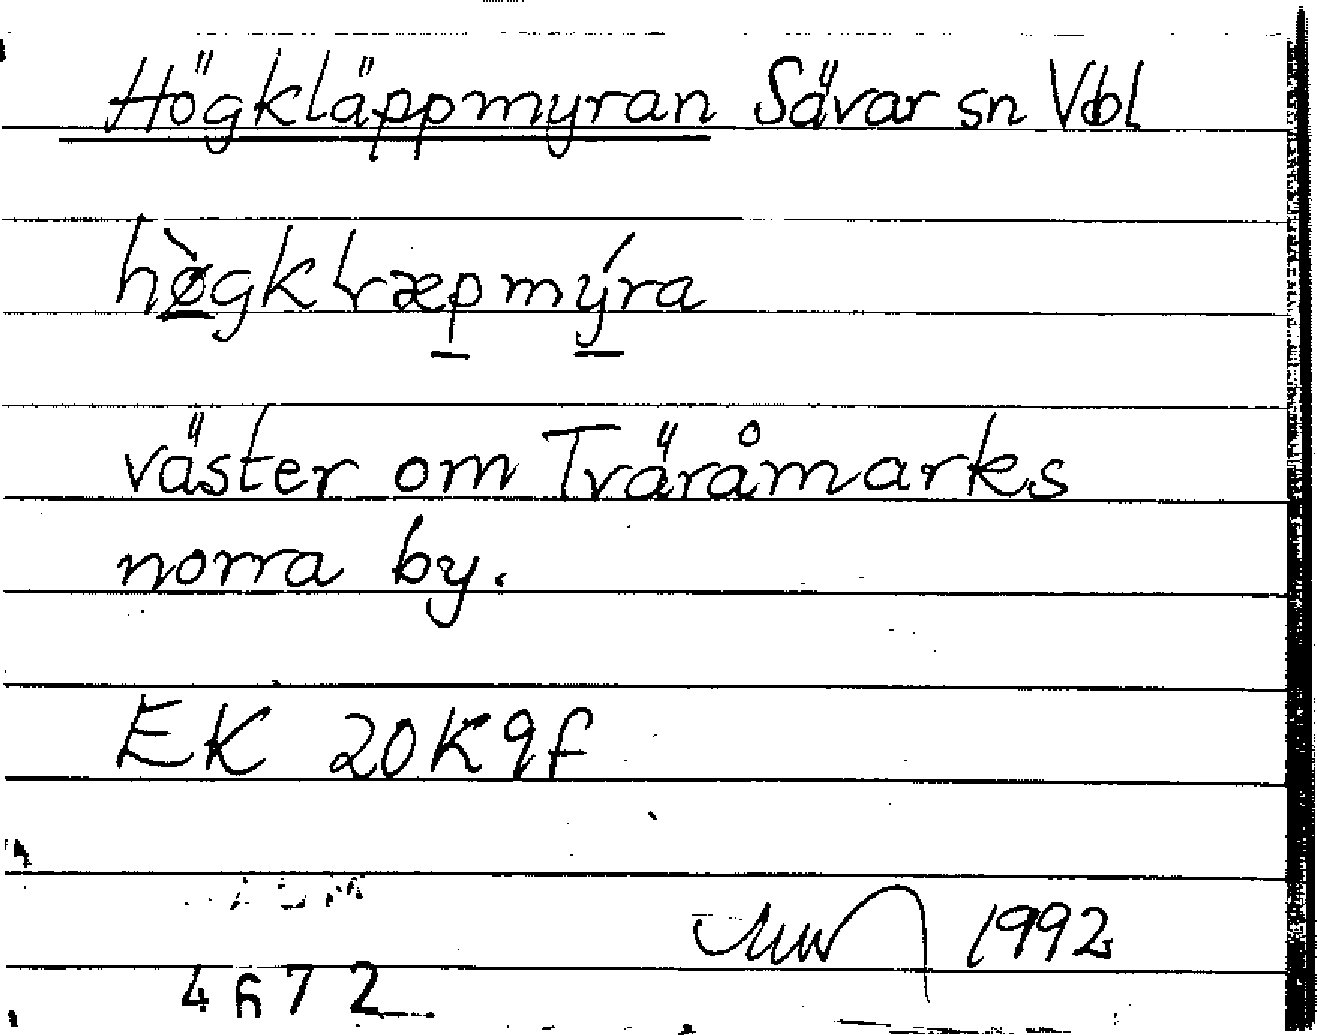 Högkläppmyran Sävar sn Vbl
hø̠̀gkɽæp̠mý̠ra
väster om Tväråmarks
norra by.
EK 20K9f
1992
4672